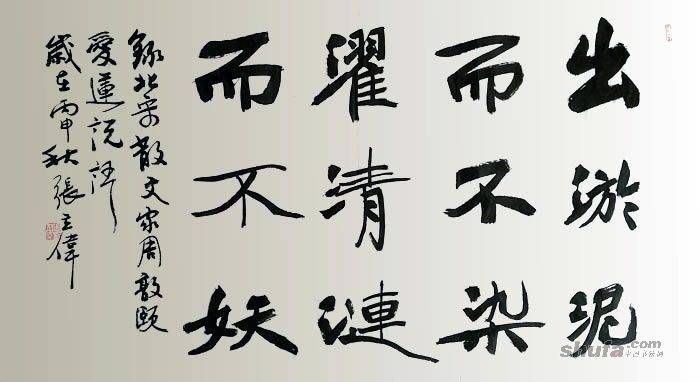 出淤泥
而不染
濯清漣
而不妖
錄北宋散文家周敦頤
愛蓮説
歲在丙申秋張偉
shufa.com
中国书法网